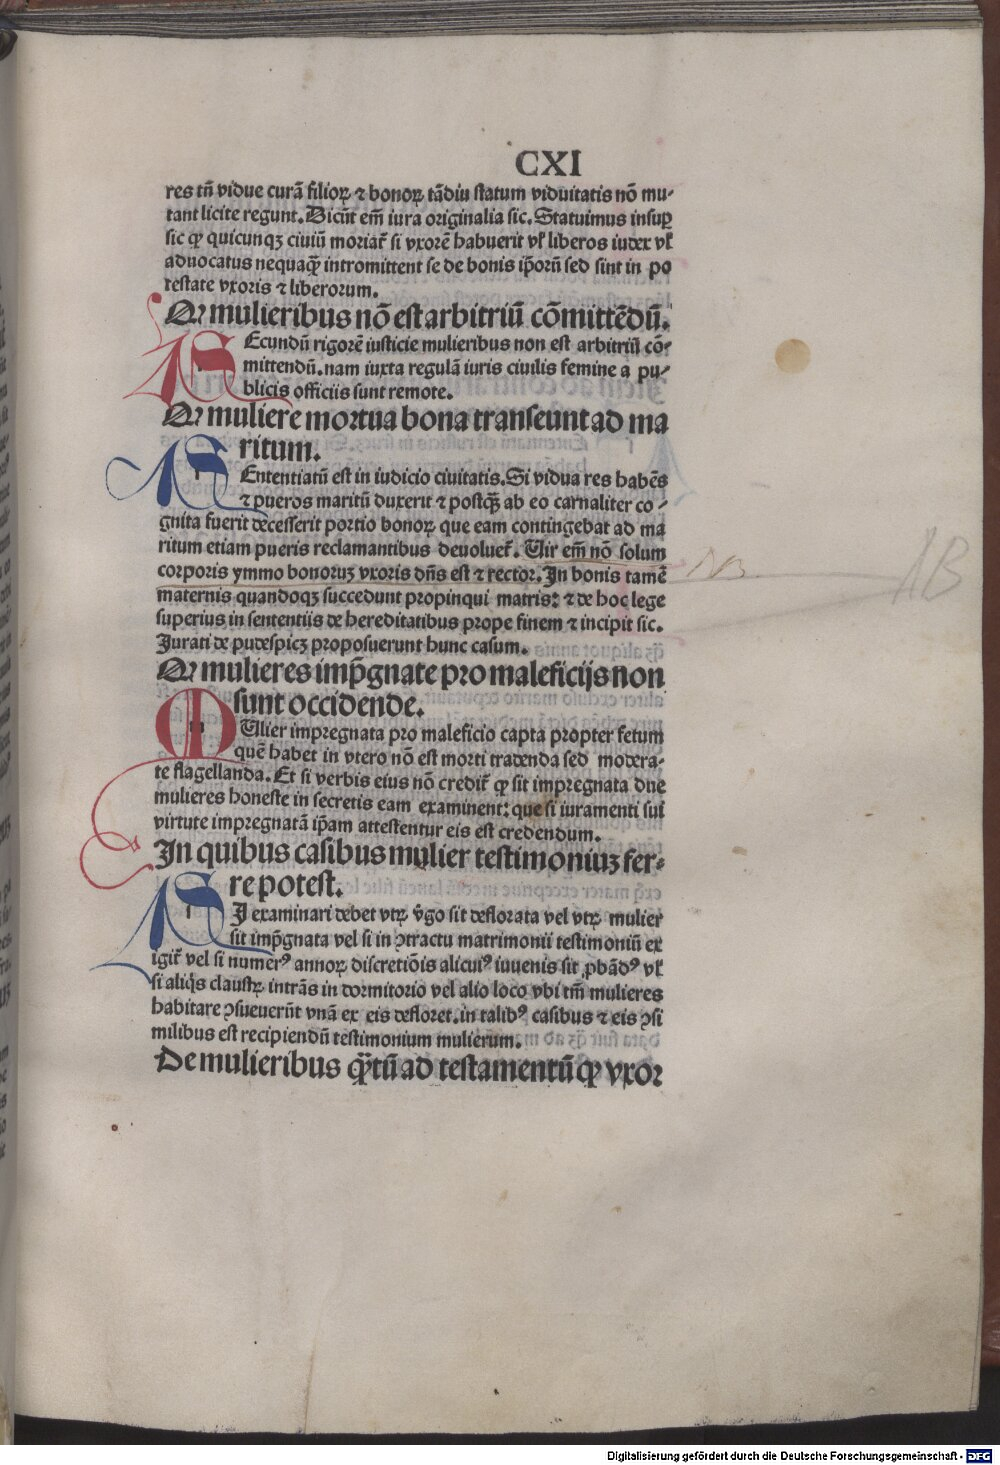 CXI
res tñ vidue curã filioꝝ ⁊ bonoꝝ tãdiu statum viduitatis nõ mu-
tant licite regunt. Dicũt em̃ iura originalia sic. Statuimus insuꝑ
sic ꝙ quicunqꝫ ciuiũ moriat᷑ si vxorẽ habuerit vł liberos iudex vł
aduocatus nequaq̃ꝫ intromittent se de bonis ip̃orũ sed sint in po
testate vxoris ⁊ liberorum.
Qꝛ mulieribus nõ est arbitriũ cõmittẽdũ.
SEcundũ rigorẽ iusticie mulieribus non est arbitriũ cõ-
mittendũ. nam iuxta regulã iuris ciuilis femine a pu-
blicis officiis sunt remote.
Qꝛ muliere mortua bona transeunt ad ma
ritum.
SEntentiatũ est in iudicio ciuitatis. Si vidua res habẽs
⁊ pueros maritũ duxerit ⁊ postq̃ꝫ ab eo carnaliter co-
gnita fuerit decesserit portio bonoꝝ que eam contingebat ad ma
ritum etiam pueris reclamantibus deuoluet᷑. Uir em̃ nõ solum
corporis ymmo bonoruꝫ vxoris dñs est ⁊ rector. In bonis tamẽ
NB
NB
maternis quandoqꝫ succedunt propinqui matris: ⁊ de hoc lege
superius in sententiis de hereditatibus prope finem ⁊ incipit sic.
Jurati de pudespicꝫ proposuerunt hunc casum.
Qꝛ mulieres imp̃gnate pro maleficijs non
sunt occidende.
MUlier impregnata pro maleficio capta propter fetum
quẽ habet in vtero nõ est morti tradenda sed modera-
te flagellanda. Et si verbis eius nõ credit᷑ ꝙ sit impregnata due
mulieres honeste in secretis eam examinent: que si iuramenti sui
virtute impregnatã ip̃am attestentur eis est credendum.
In quibus casibus mulier testimoniuꝫ fer-
re potest.
SI examinari debet vtꝝ v̾go sit deflorata vel vtꝝ mulier
sit imp̃gnata vel si in ↄtractu matrimonii testimoniũ ex
igit᷑ vel si numerꝰ annoꝝ discretiõis alicuiꝰ iuuenis sit ꝓbãdꝰ vł
si aliq̇s claustꝝ intrãs in dormitorio vel alio loco vbi tm̃ mulieres
habitare ↄsueuerũt vnã ex eis defloret. in talibꝰ casibus ⁊ eis ↄsi
milibus est recipiendũ testimonium mulierum.
De mulieribus q̃ꝫtũ ad testamentũ ꝙ vxoꝛ
Digitalisierung gefördert durch die Deutsche Forschungsgemeinschaft - DFG